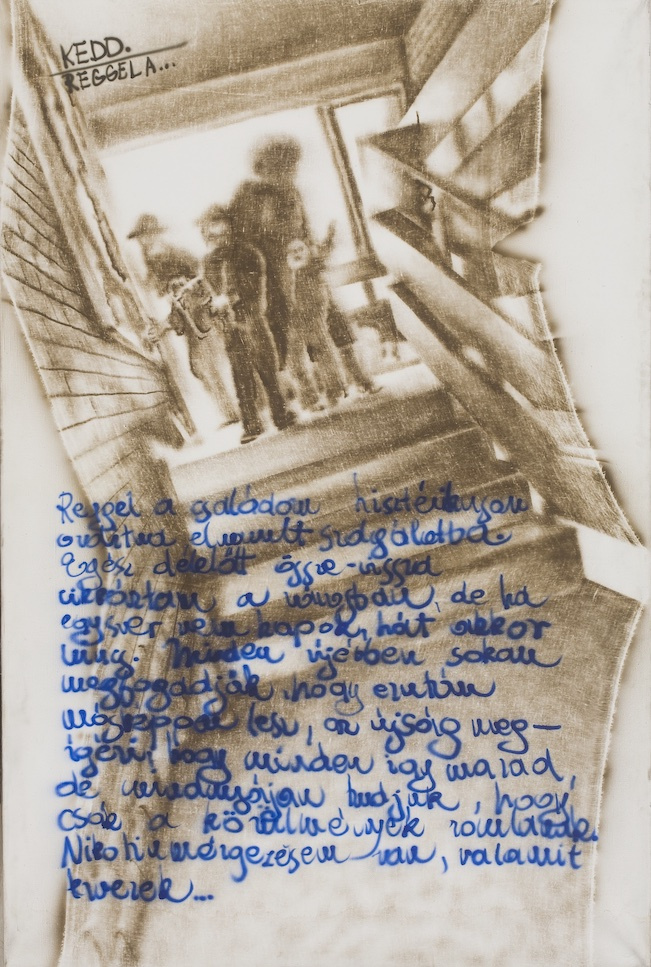 KEDD.
REGGEL A...
Reggel a családom hisztérikusan
ordítva elvonult szolgálatba.
Egész délelőtt össze-vissza
cikáztam a városban, de ha
egyszer nem kapok, hát akkor
nincs. Minden újévben sokan
megfogadják, hogy ezután
másképpen lesz, az újság meg-
ígéri, hogy minden így marad,
de mindnyájan tudjuk, hogy
csak a körülmények romlanak.
Nikotinmérgezésem van, valamit
keverek...